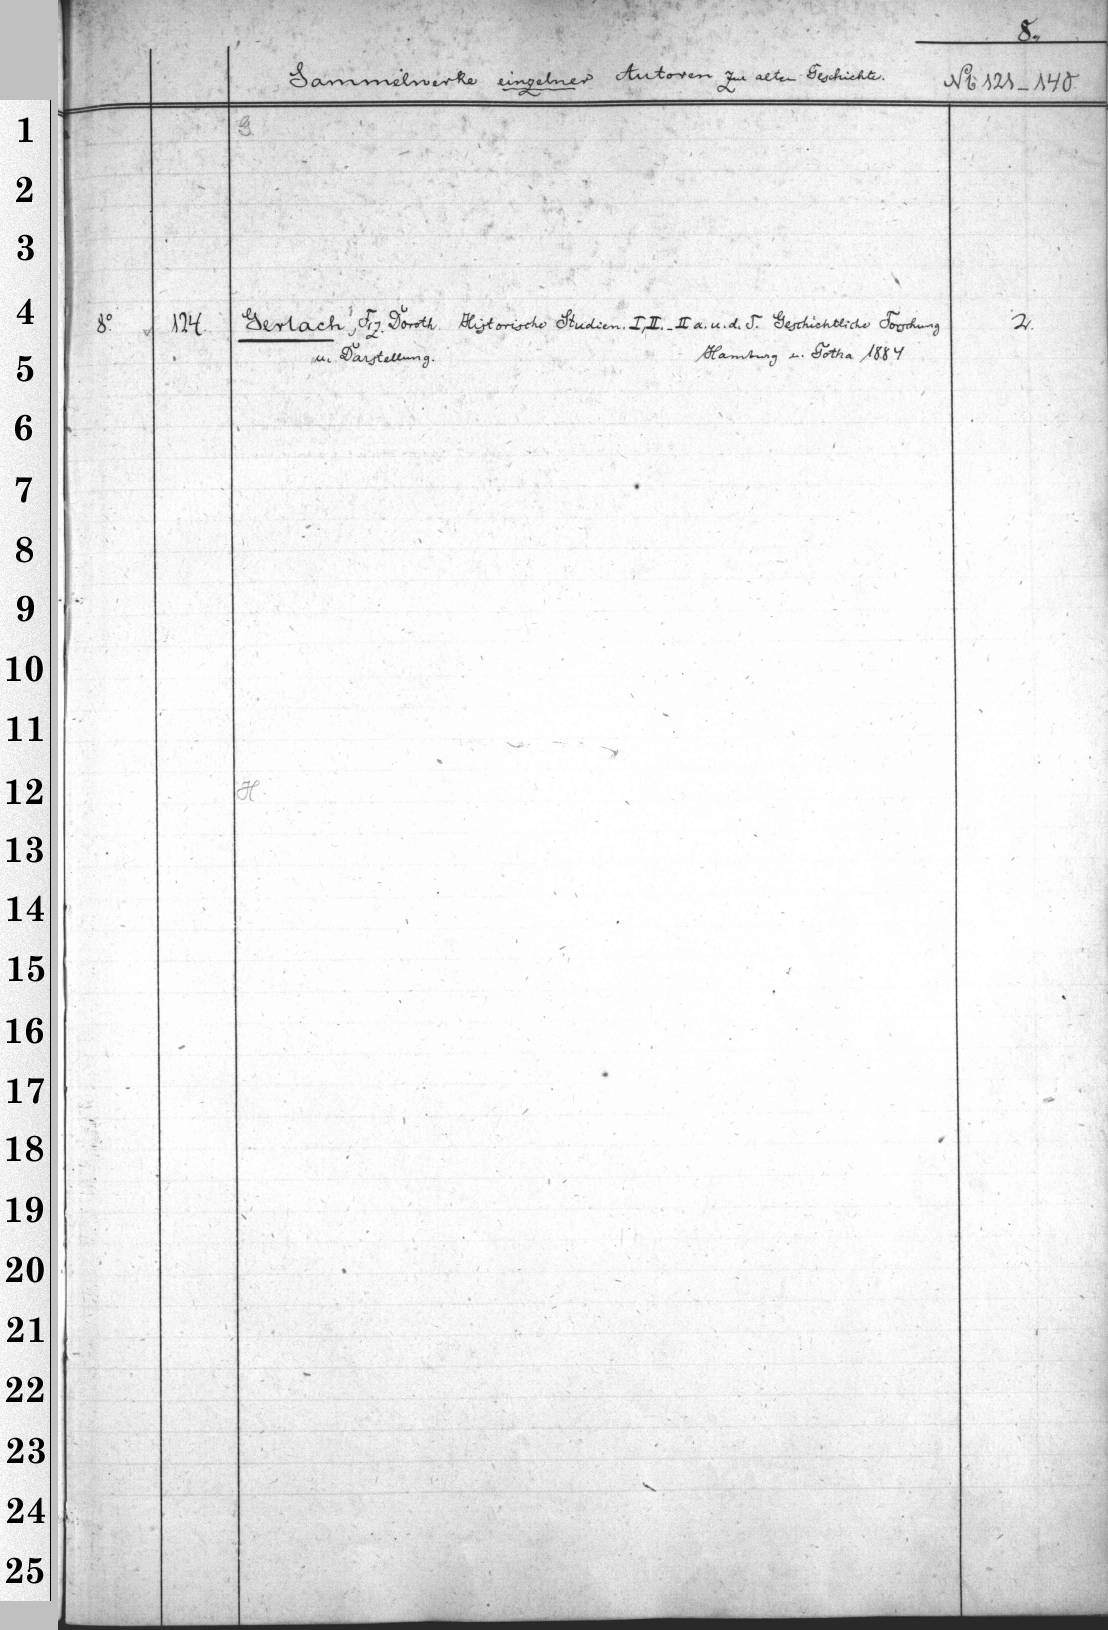 8.
Sammelwerke einzelner Autoren zur alten Geschichte. No 121-140
G
8° 124. Gerlach, Fz. Doroth Historische Studien. I, II. - II a. u. d. T. Geschichtliche Forschung 2.
u. Darstellung. Hamburg u. Gotha 1884
H
1
2
3
4
5
6
7
8
9
10
11
12
13
14
15
16
17
18
19
20
21
22
23
24
25